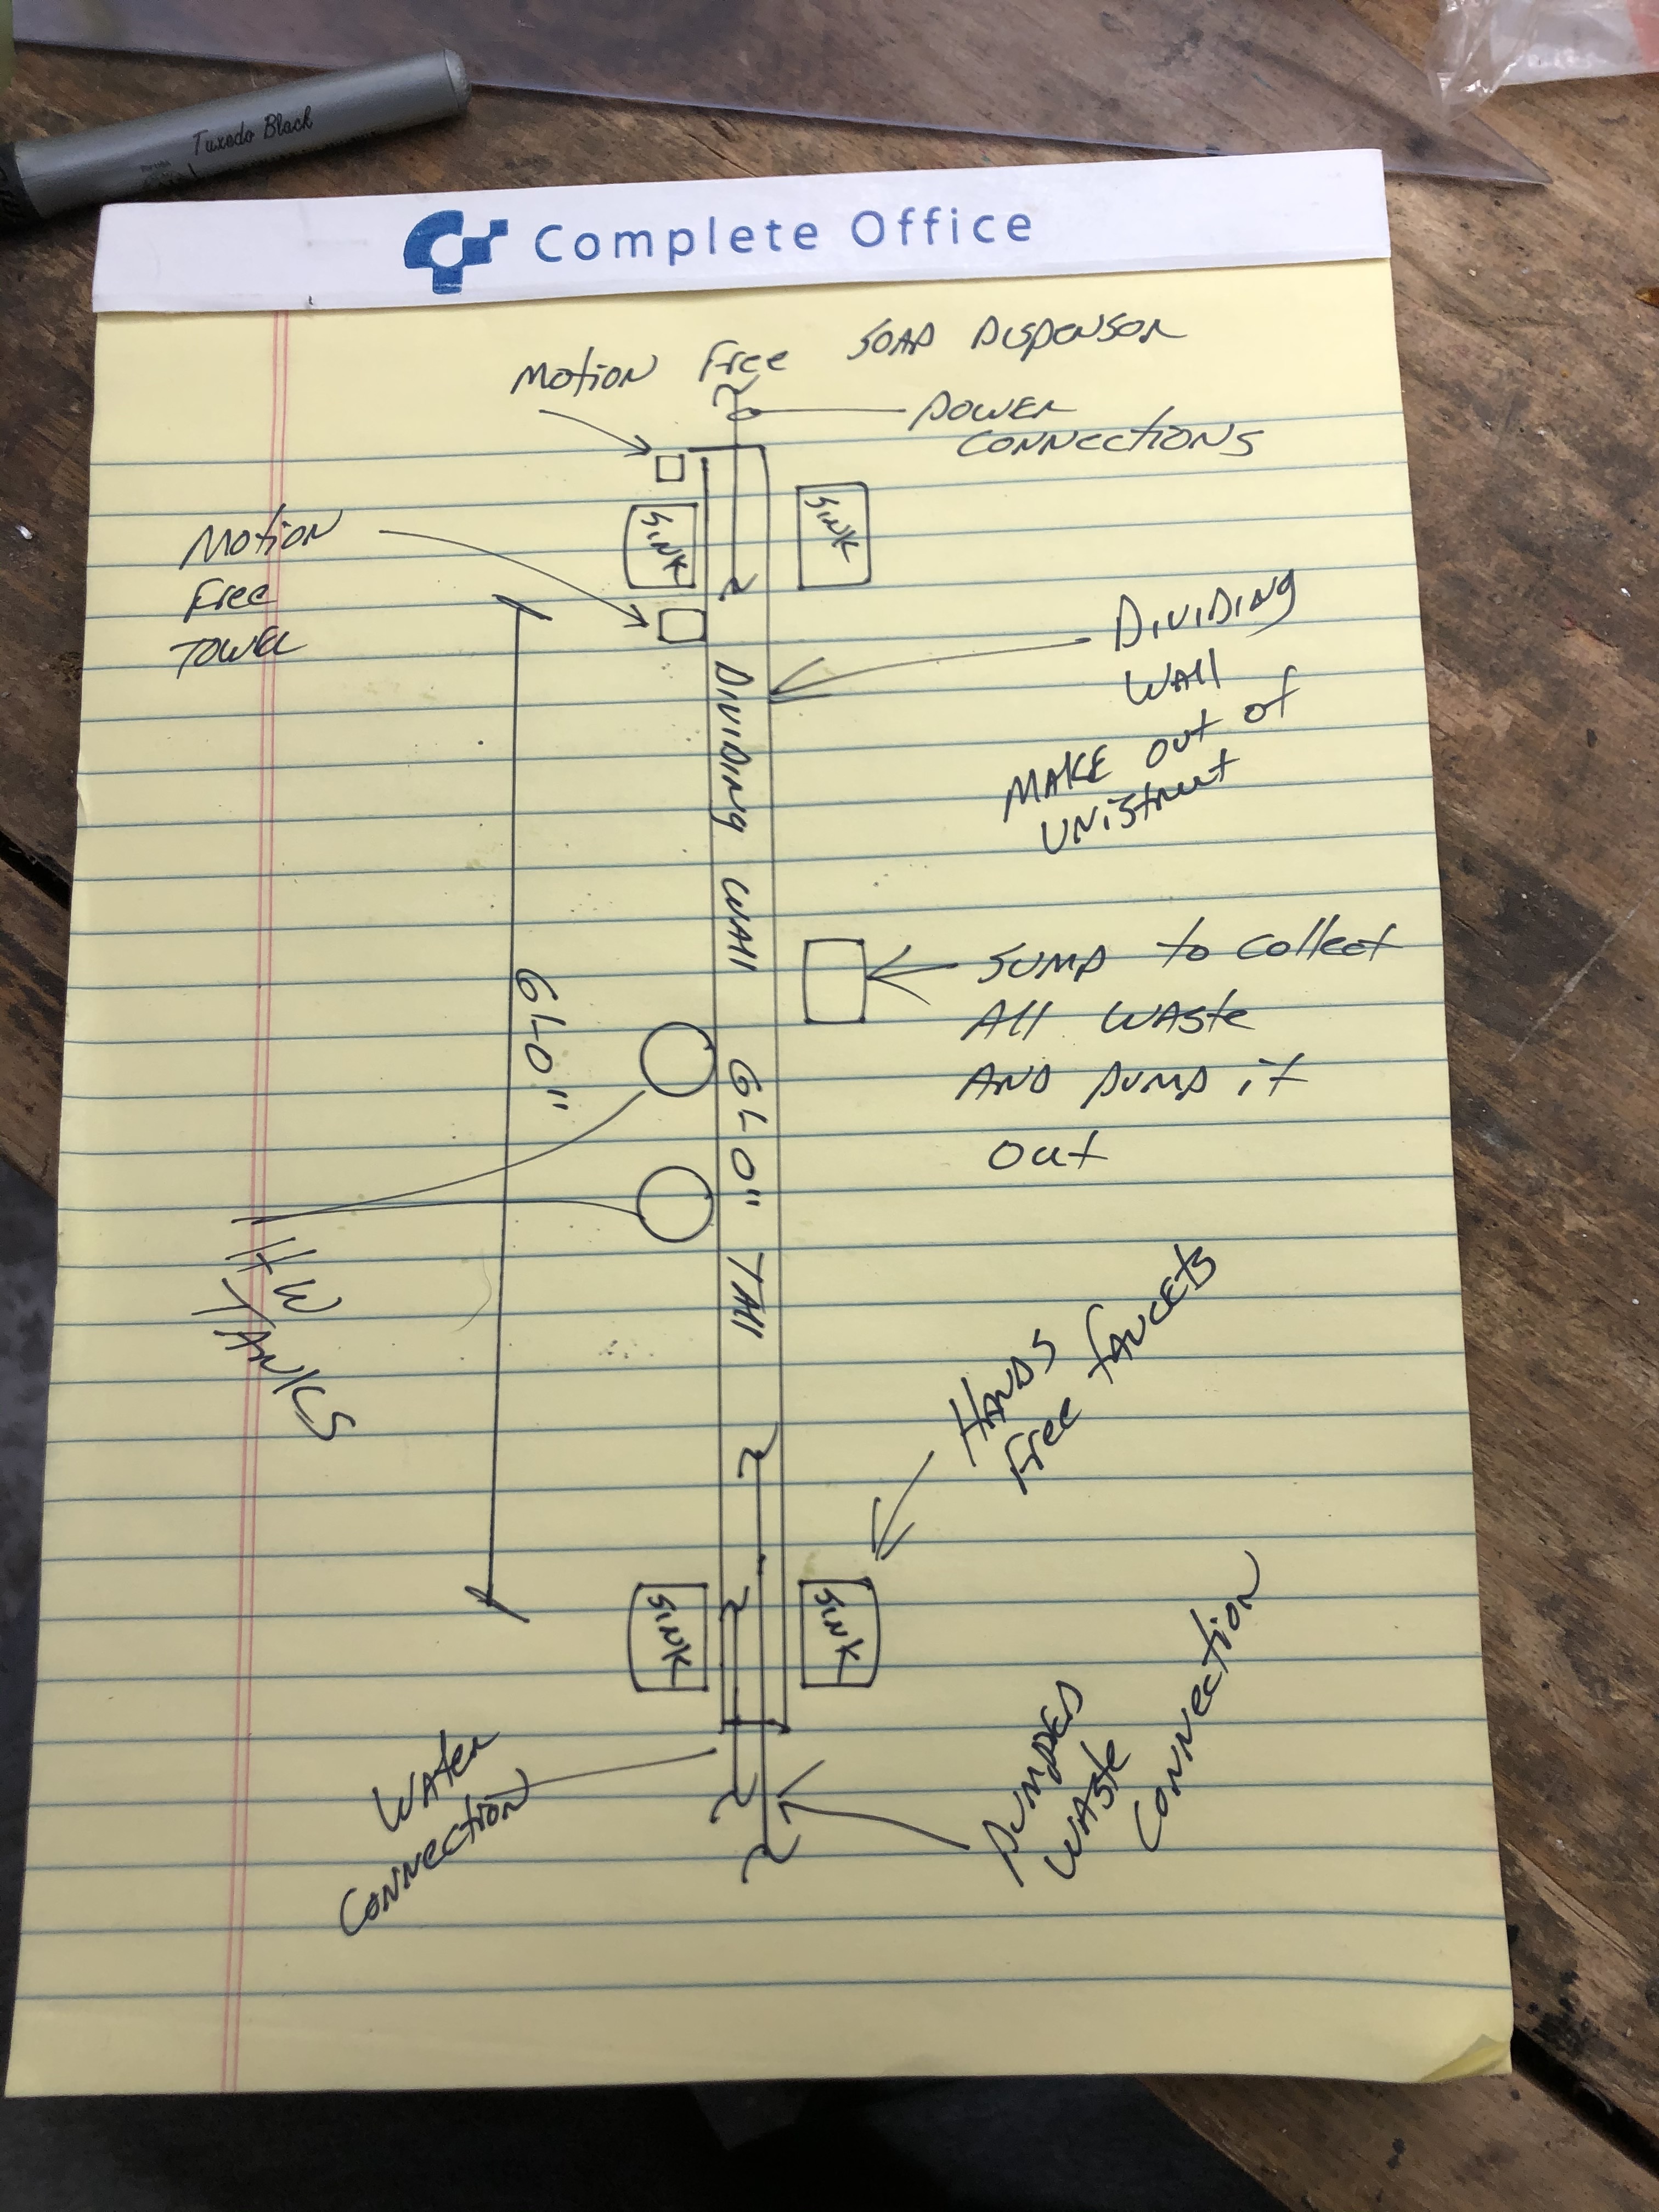 Tuxedo Black
Complete Office
Motion Free SOAP DISPENSOR
POWER
CONNECTIONS
SINK
SINK
Motion
Free
TOWEL
DIVIDING
WAll
MAKE out of
UNiStrut
DIVIDING WAll 6'-0" TAll
6'-0"
SUMP to collect
All WASte
AND PUMP it
Out
HW
TANKS
HANDS
Free fAUCEts
SINK
SINK
WAter
CONNection
PUMPED
WASte
CONNection